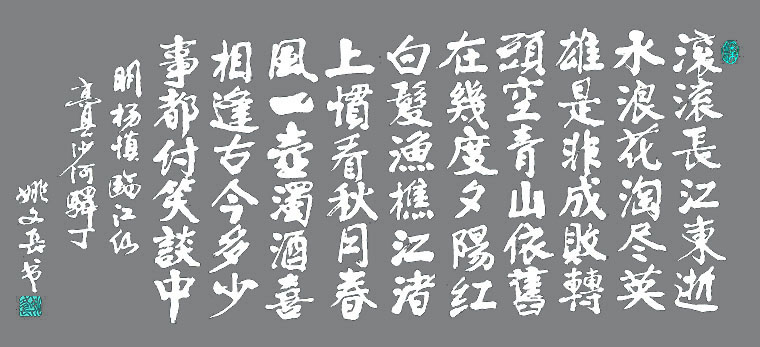 滚滚長江東逝
水浪花淘尽英
雄是非成敗轉
頭空青山依舊
在幾度夕陽红
白髮漁樵江渚
上慣看秋月春
風一壶濁酒喜
相逢古今多少
事都付笑談中
明杨慎臨江仙
沙何驛
姚文书